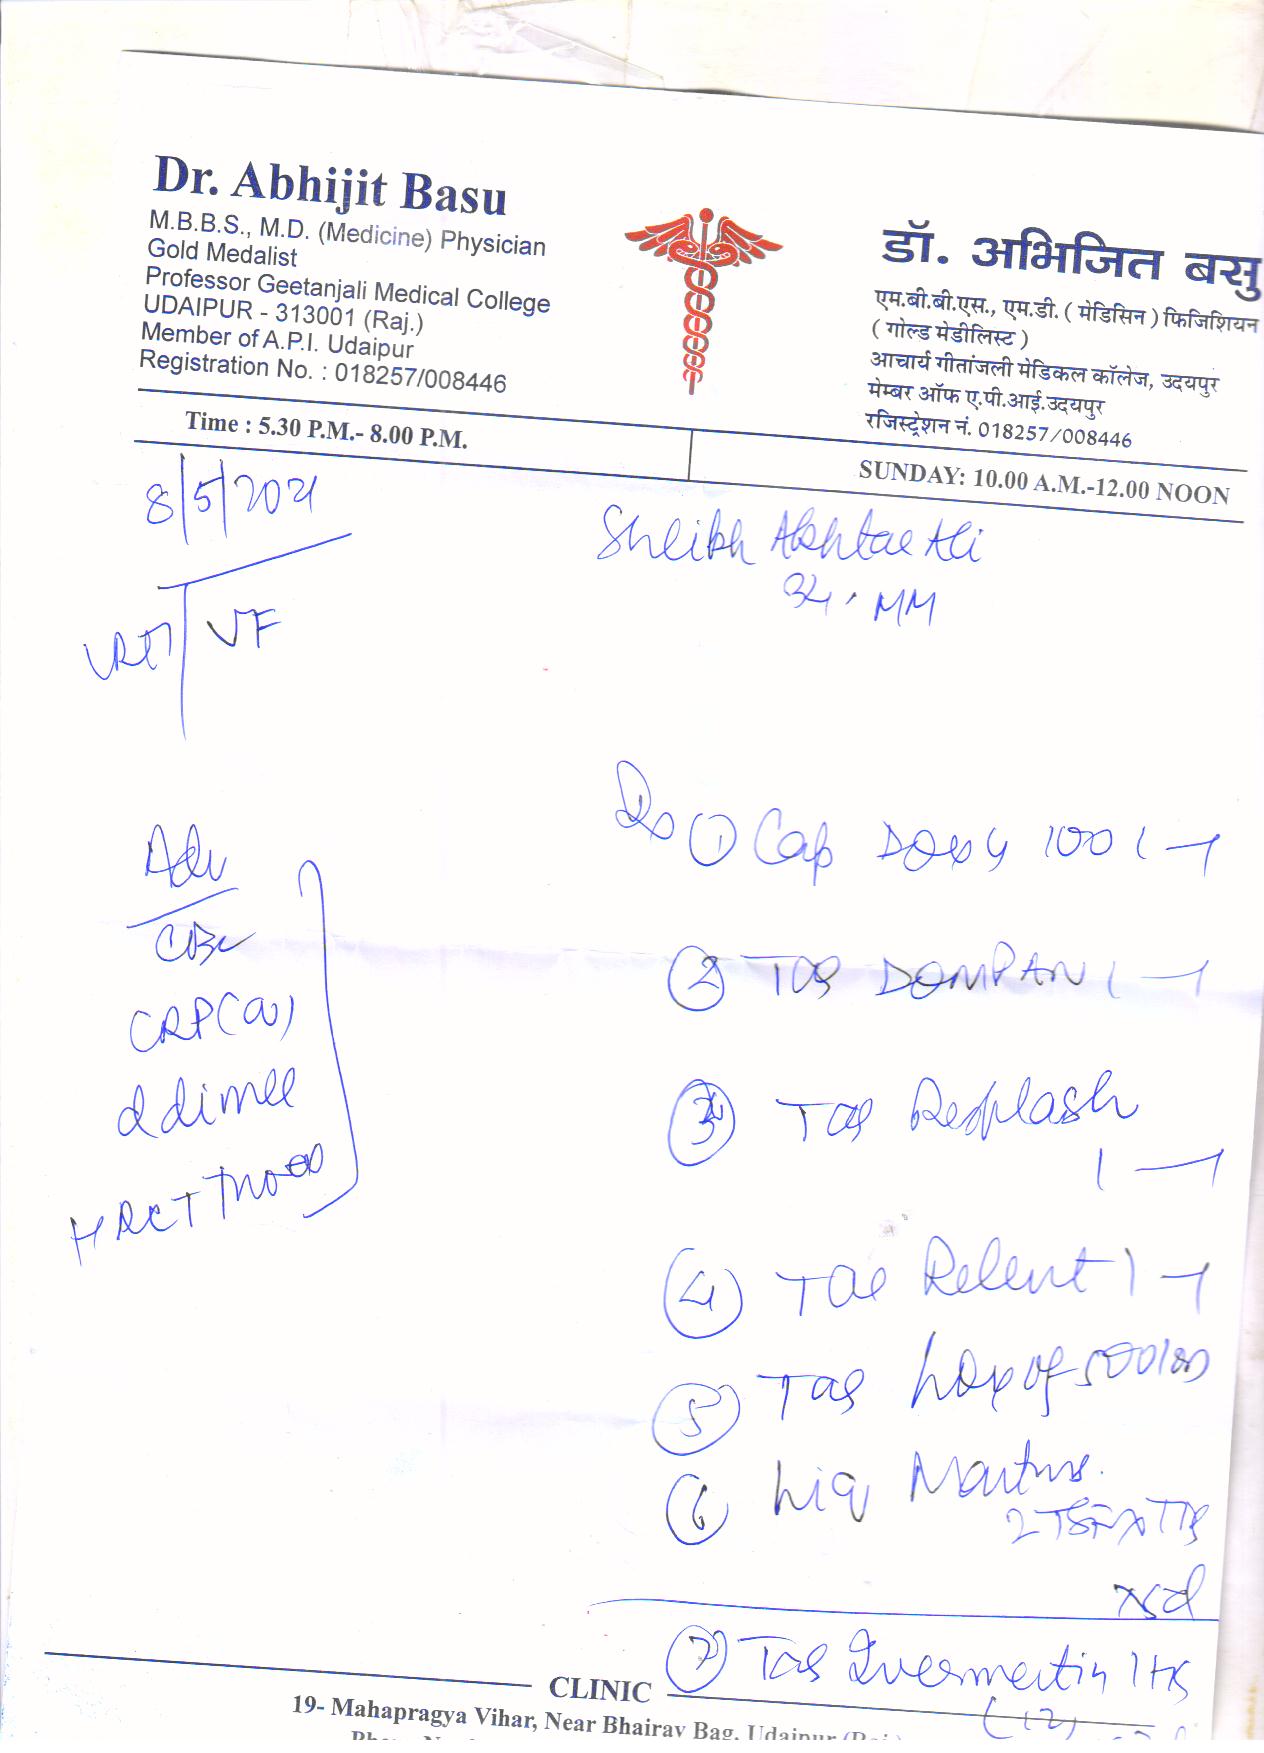 Dr. Abhijit Basu
M.B.B.S., M.D. (Medicine) Physician
Gold Medalist
Professor Geetanjali Medical College
UDAIPUR - 313001 (Raj.)
Member of A.P.I. Udaipur
Registration No. : 018257/008446
डॉ. अभिजित बसु
एम.बी.बी.एस., एम.डी. ( मेडिसिन ) फिजिशियन
( गोल्ड मेडीलिस्ट )
आचार्य गीतांजली मेडिकल कॉलेज, उदयपुर
मेम्बर ऑफ ए.पी.आई.उदयपुर
रजिस्ट्रेशन नं. 018257/008446
Time : 5.30 P.M.- 8.00 P.M.
SUNDAY: 10.00 A.M.-12.00 NOON
8/5/2021
Sheikh Akhtar Ali
34, MM
URTI VF
Adv
CBC
CRP(Q)
d dimer
HRCT Thorax
Rx ① Cap Doxy 100 1-1
② Tab DOMPAN 1-1
③ Tab
1-1
④ Tab Relent 1-1
⑤ Tab 500
⑥ Liq
2 TSF x TDS
x5d
⑦ Tab Ivermectin 1 HS
(12)
CLINIC
19- Mahapragya Vihar, Near Bhairav Bag, Udaipur (Raj.)